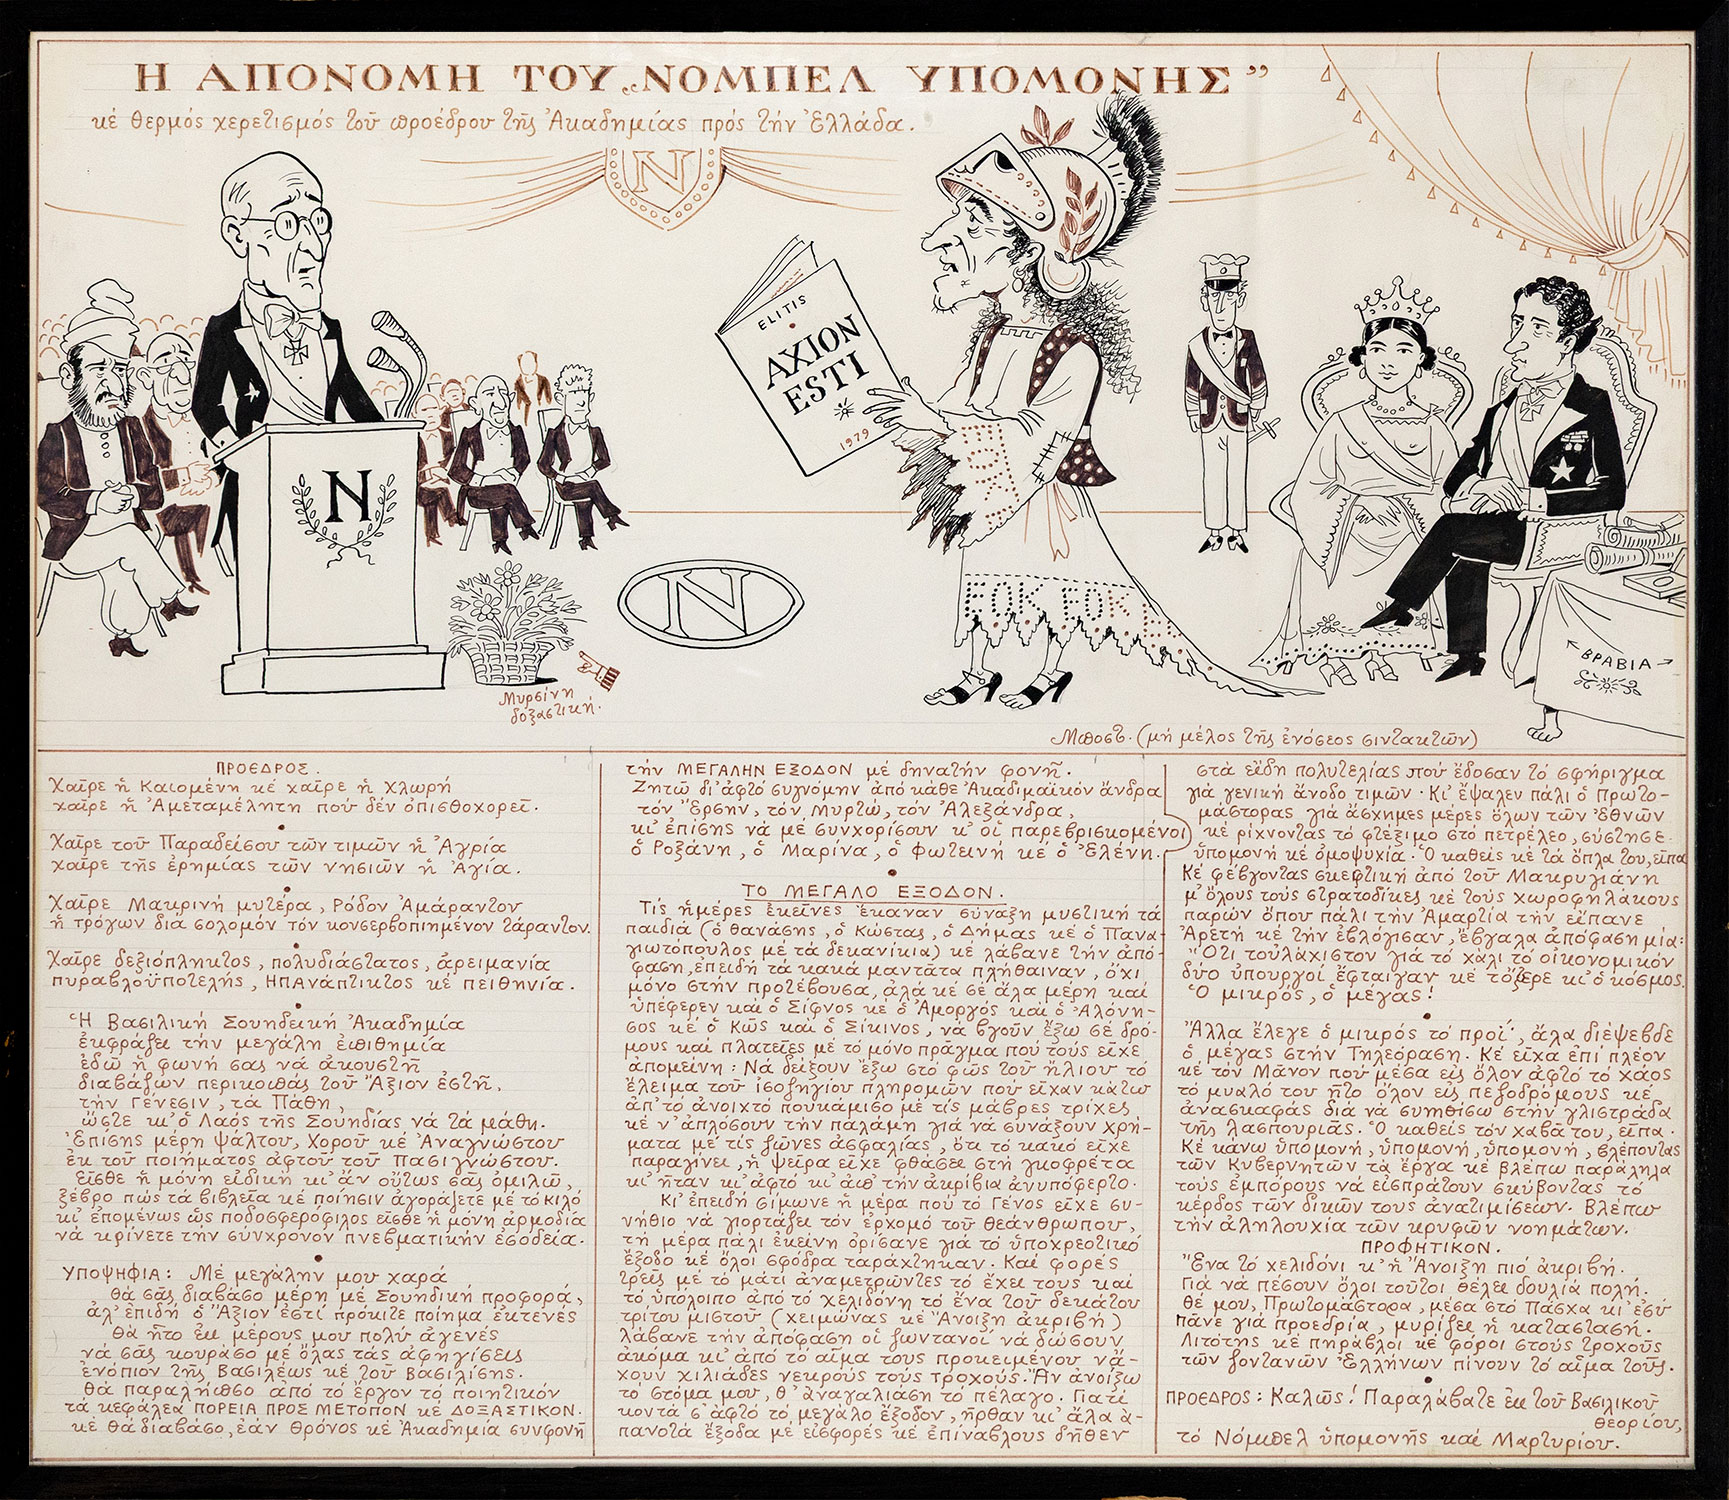 Η ΑΠΟΝΟΜΗ ΤΟΥ „ΝΟΜΠΕΛ ΥΠΟΜΟΝΗΣ”
κέ θερμός χερετισμός τοῦ προέδρου τῆς Ἀκαδημίας πρός τήν Ἑλλάδα.
N
ELITIS
AXION
ESTI
1979
N
N
FOK FOK
ΒΡΑΒΙΑ
Μυρσίνη
δοξαστική.
Μποστ. (μή μέλος τῆς ἐνόσεος σιντακτῶν)
ΠΡΟΕΔΡΟΣ.
Χαῖρε ἡ Καιομένη κέ χαῖρε ἡ Χλωρή
χαῖρε ἡ Ἀμεταμέλητη πού δέν ὀπισθοχορεῖ.
Χαῖρε τοῦ Παραδείσου τῶν τιμῶν ἡ Ἀγρία
χαῖρε τῆς ἐρημίας τῶν νησιῶν ἡ Ἁγία.
Χαῖρε Μακρινή μυτέρα, Ρόδον Ἀμάραντον
ἡ τρόγων διά σολομόν τόν κονσερβοπιημένον τάραντον.
Χαῖρε δεξιόπληκτος, πολυδιάστατος, ἀρειμανία
πυραβλοϋποτελής, ΗπΑνάπτικτος κέ πειθηνία.
Ἡ Βασιλική Σουηδική Ἀκαδημία
ἐκφράζει τήν μεγάλη ἐπιθημία
ἐδῶ ἡ φωνή σας νά ἀκουστῆ
διαβάζων περικοπάς τοῦ Ἄξιον ἐστῆ,
τήν Γένεσιν, τά Πάθη,
ὥστε κι' ὁ Λαός τῆς Σουηδίας νά τά μάθη.
Ἐπίσης μέρη ψάλτου, Χοροῦ κέ Ἀναγνώστου
ἐκ τοῦ ποιήματος ἀφτοῦ τοῦ πασιγνώστου.
Εἶσθε ἡ μόνη εἰδική κι' ἄν οὕτως σᾶς ὁμιλῶ,
ξέβρο πώς τά βιβλεῖα κέ ποίησιν ἀγοράζετε μέ τό κιλό
κι' ἑπομένως ὡς ποδοσφερόφιλος εἶσθε ἡ μόνη ἁρμοδία
νά κρίνετε τήν σύνχρονον πνεβματικήν ἐσοδεία.
ΥΠΟΨΗΦΙΑ: Μέ μεγάλην μου χαρά
θά σᾶς διαβάσο μέρη μέ Σουηδική προφορά,
ἀλ' ἐπιδή ὁ Ἄξιον ἐστί πρόκιτε ποίημα ἐκτενές
θά ἦτο ἐκ μέρους μου πολύ ἀγενές
νά σᾶς κουράσο μέ ὅλας τάς ἀφηγίσεις
ἐνόπιον τῆς Βασιλέως κέ τοῦ Βασιλίσης.
θά παραλήπσο ἀπό τό ἔργον τό ποιητικόν
τά κεφάλεα ΠΟΡΕΙΑ ΠΡΟΣ ΜΕΤΟΠΟΝ κέ ΔΟΞΑΣΤΙΚΟΝ.
κέ θά διαβάσο, ἐάν Θρόνος κέ Ἀκαδημία συνφονῆ
τήν ΜΕΓΑΛΗΝ ΕΞΟΔΟΝ μέ δηνατήν φονῆ.
Ζητῶ δι' ἀφτό συγνόμην ἀπό κάθε Ἀκαδιμαϊκόν ἄνδρα
τόν Ἔρσην, τόν Μυρτώ, τόν Ἀλεξάνδρα,
κι' ἐπίσης νά μέ συνχορίσουν κ' οἱ παρεβρισκομένοι
ὁ Ροξάνη, ὁ Μαρίνα, ὁ Φωτεινή κέ ὁ Ἑλένη.
ΤΟ ΜΕΓΑΛΟ ΕΞΟΔΟΝ.
Τίς ἡμέρες ἐκεῖνες ἔκαναν σύναξη μυστική τά
παιδιά (ὁ Θανάσης, ὁ Κώστας, ὁ Δήμας κέ ὁ Πανα-
γιωτόπουλος μέ τά δεκανίκια) κέ λάβανε τήν ἀπό-
φαση, ἐπειδή τά κακά μαντάτα πλήθαιναν, ὄχι
μόνο στήν προτέβουσα, ἀλά κέ σέ ἄλα μέρη καί
ὑπέφερεν καί ὁ Σίφνος κέ ὁ Ἀμοργός καί ὁ Ἀλόνη-
σος κέ ὁ Κῶς καί ὁ Σίκινος, νά βγοῦν ἔξω σέ δρό-
μους καί πλατεῖες μέ τό μόνο πρᾶγμα πού τούς εἶχε
ἀπομείνη: Νά δείξουν ἔξω στό φῶς τοῦ ἥλιου τό
ἔλειμα τοῦ ἰσοζηγίου πληρομῶν πού εἶχαν κάτω
ἀπ' τό ἀνοιχτό πουκάμισο μέ τίς μάβρες τρίχες
κέ ν' ἁπλόσουν τήν παλάμη γιά νά συνάξουν χρή-
ματα μέ τίς ζῶνες ἀσφαλίας, ὅτι τό κακό εἶχε
παραγίνει, ἡ ψεῖρα εἶχε φθάσει στή γκοφρέτα
κι' ἦταν κι' ἀφτό κι' ἀπό τήν ἀκρίβια ἀνυπόφερτο.
Κι' ἐπειδή σίμωνε ἡ μέρα πού τό Γένος εἶχε συ-
νήθιο νά γιορτάζει τόν ἐρχομό τοῦ θεάνθρωπου,
τή μέρα πάλι ἐκείνη ὁρίσανε γιά τό ὑποχρεοτικό
ἔξοδο κέ ὅλοι σφόδρα ταράχτηκαν. Καί φορές
τρεῖς μέ τό μάτι ἀναμετρῶντες τό ἔχει τους καί
τό ὑπόλοιπο ἀπό τό χελιδόνη τό ἕνα τοῦ δεκάτου
τρίτου μιστοῦ (χειμώνας κ' Ἄνοιξη ἀκριβή)
λάβανε τήν ἀπόφαση οἱ ζωντανοί νά δώσουν
ἀκόμα κι' ἀπό τό αἷμα τους προκειμένου νἄ-
χουν χιλιάδες νεκρούς τούς τροχούς. Ἄν ἀνοίξω
τό στόμα μου, θ' ἀναγαλιάση τό πέλαγο. Γιατί
κοντά σ' ἀφτό τό μεγάλο ἔξοδον, ἦρθαν κι' ἄλα ἀ-
πανοτά ἔξοδα μέ εἰσφορές κέ ἐπίναβλους δῆθεν
στά εἴδη πολυτελίας πού ἔδοσαν τό σφήριγμα
γιά γενική ἄνοδο τιμῶν. Κι' ἔψαλεν πάλι ὁ πρωτο-
μάστορας γιά ἄσχημες μέρες ὅλων τῶν ἐθνῶν
κέ ρίχνοντας τό φτέξιμο στό πετρέλεο, σύστησε
ὑπομονή κέ ὁμοψυχία. Ὁ καθείς κέ τά ὅπλα του, εἶπα
Κέ φέβγοντας σκεφτική ἀπό τοῦ Μακρυγιάννη
μ' ὅλους τούς στρατοδίκες κέ τούς χωροφηλάκους
παρών ὅπου πάλι τήν Ἁμαρτία τήν εἴπανε
Ἀρετή κέ τήν ἐβλόγισαν, ἔβγαλα ἀπόφαση μία:
Ὅτι τοὐλάχιστον γιά τό χάλι τό οἰκονομικόν
δύο ὑπουργοί ἔφταιγαν κέ τὄξερε κι' ὁ κόσμος.
Ὁ μικρός, ὁ μέγας!
Ἄλλα ἔλεγε ὁ μικρός τό προΐ, ἄλα διέψεβδε
ὁ μέγας στήν Τηλεόραση. Κέ εἶχα ἐπί πλέον
κέ τόν Μάνον πού μέσα εἰς ὅλον ἀφτό τό χάος
τό μυαλό του ἦτο ὅλον εἰς πεζοδρόμους κέ
ἀνασκαφάς διά νά συηθίσω στήν γλιστράδα
τῆς λασπουριᾶς. Ὁ καθείς τόν χαβᾶ του, εἶπα.
Κέ κάνω ὑπομονή, ὑπομονή, ὑπομονή, βλέποντας
τῶν Κυβερνητῶν τά ἔργα κέ βλέπω παράληλα
τούς ἐμπόρους νά εἰσπράτουν σκύβοντας τό
κέρδος τῶν δικῶν τους ἀνατιμίσεων. Βλέπω
τήν ἀληλουχία τῶν κρυφῶν νοημάτων.
ΠΡΟΦΗΤΙΚΟΝ.
Ἕνα τό χελιδόνι κ' ἡ Ἄνοιξη πιό ἀκριβή.
Γιά νά πέσουν ὅλοι τοῦτοι θέλει δουλιά πολή.
Θέ μου, Πρωτομάστορα, μέσα στό Πάσχα κι' ἐσύ
πᾶνε γιά προεδρία, μυρίζει ἡ κατάσταση.
Λιτότης κέ πηραβλοι κέ φόροι στούς τροχούς
τῶν ζοντανῶν Ἑλλήνων πίνουν τό αἷμα τούς.
ΠΡΟΕΔΡΟΣ: Καλῶς! Παραλάβατε ἐκ τοῦ Βασιλικοῦ
θεορίου,
τό Νόμπελ ὑπομονῆς καί Μαρτυρίου.